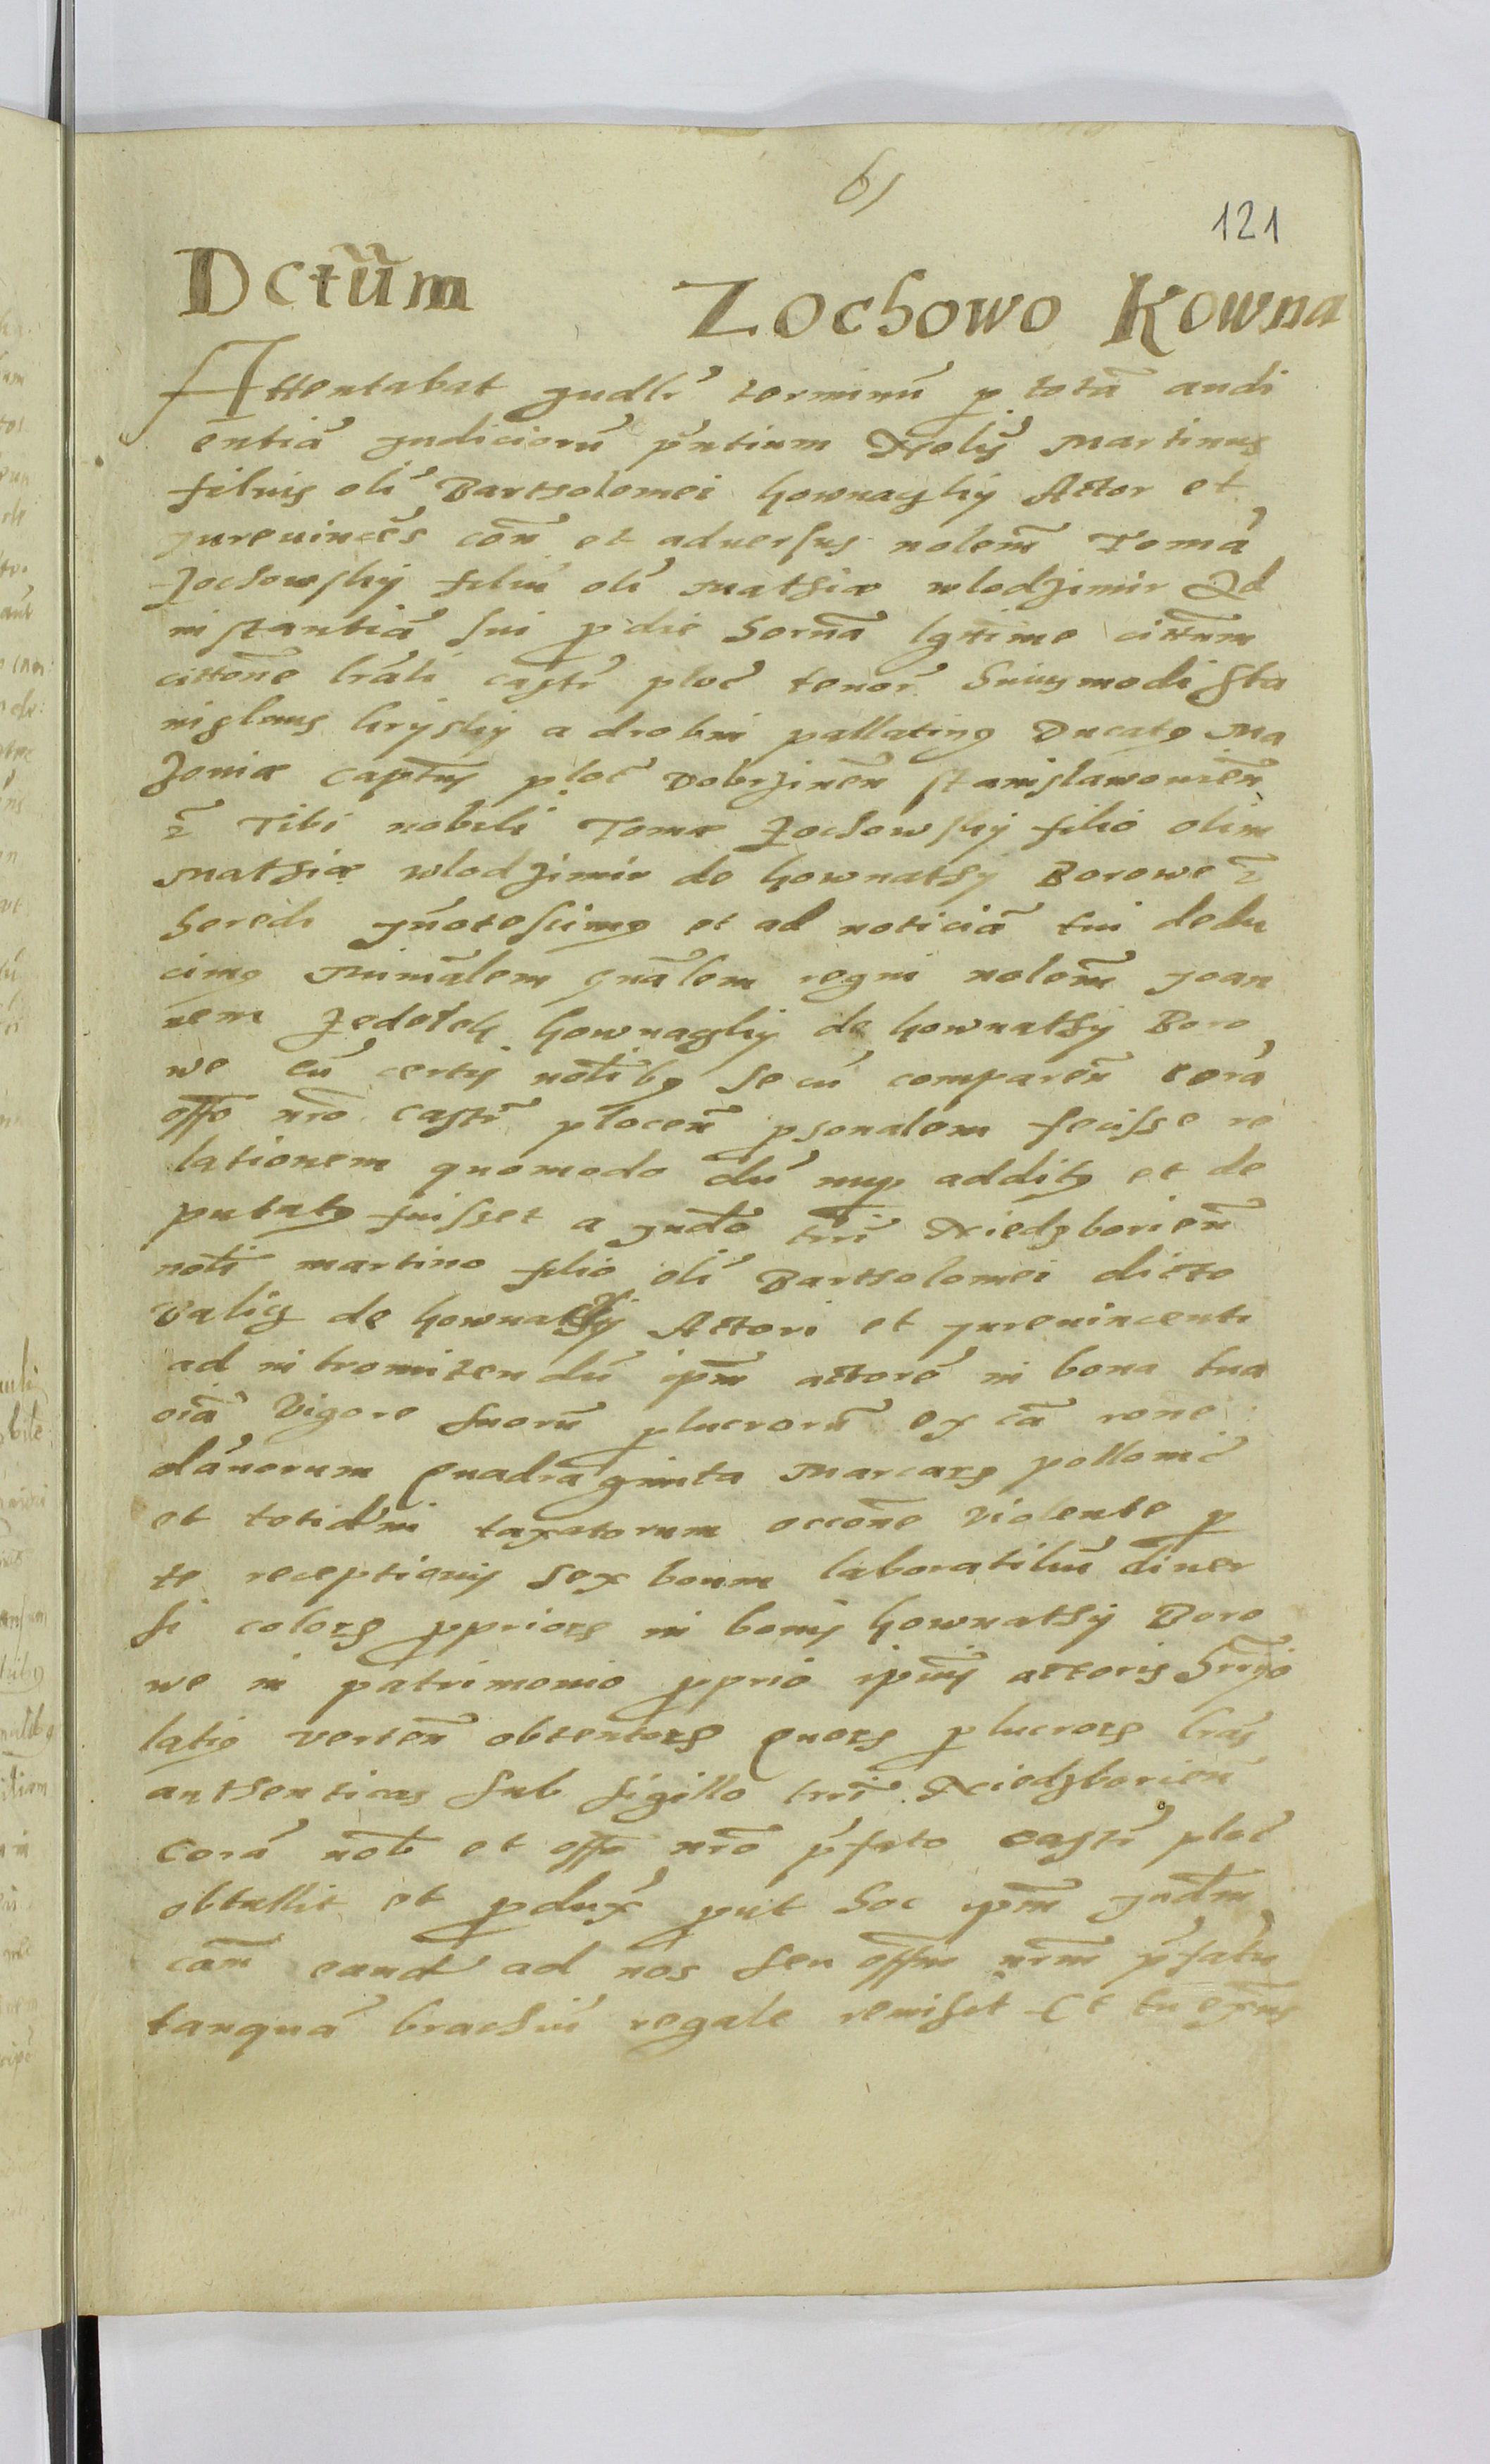 61
121
Dctūm Zochowo Kowna
Attentabat judlr terminū p totā audi
entiā judiciorū pntium Nolis Martinus
filius oli Bartholomei kownaczky Actor et
jurevincēs con et adversus nolem Tomā
Zochowsky filiū oli Mathiæ wlodzimir Ad
instantiā sui p die hernā lgtime cittum
cittone lrali castr ploc tenor huiusmodi Sta
nislaus krysky a drobni pallating Ducatg Ma
zoviæ Captus ploc Dobrzinen stanislawowien
z Tibi nobili Tomæ Zochowsky filio olim
Mathiæ wlodzimir de kownathy Borowe z
heredi jnotescimg et ad noticiā tui dedu
cimg Minralem gnalem regni nolem Joan
nem Zedolek kownaczky de kownathy Boro
we cū certis notibg secū comparen corā
offo nro castr plocen psonalem fecisse re
lationem quomodo dū nup additg et de
putatg fuisset a judo trri Niedzborien
noli martino filio oli Bartholomei dicto
Valig de kownathy Actori et jurevincenti
ad intromitendū ipm actorē in bona tua
oia Vigore suorū plucrorū ex ca rone
damnorum Quadraginta Marcarg pollonic
et totidni taxatorum occone violente p
te receptionis sex boum laboratiliū diver
si colorg ppriorg in bonis kownathy Boro
we in patrimonio pprio ipius actoris
latis verten obtentorg Quorg plucrorg lras
authenticas sub sigillo trri Niedzborien
Corā nob et offo nro pfato castr ploc
obtullit et pdux put hoc ipm judm
cam eand ad nos seu offm nrm pfatu
tanquā brachiū regale remisit Et tu